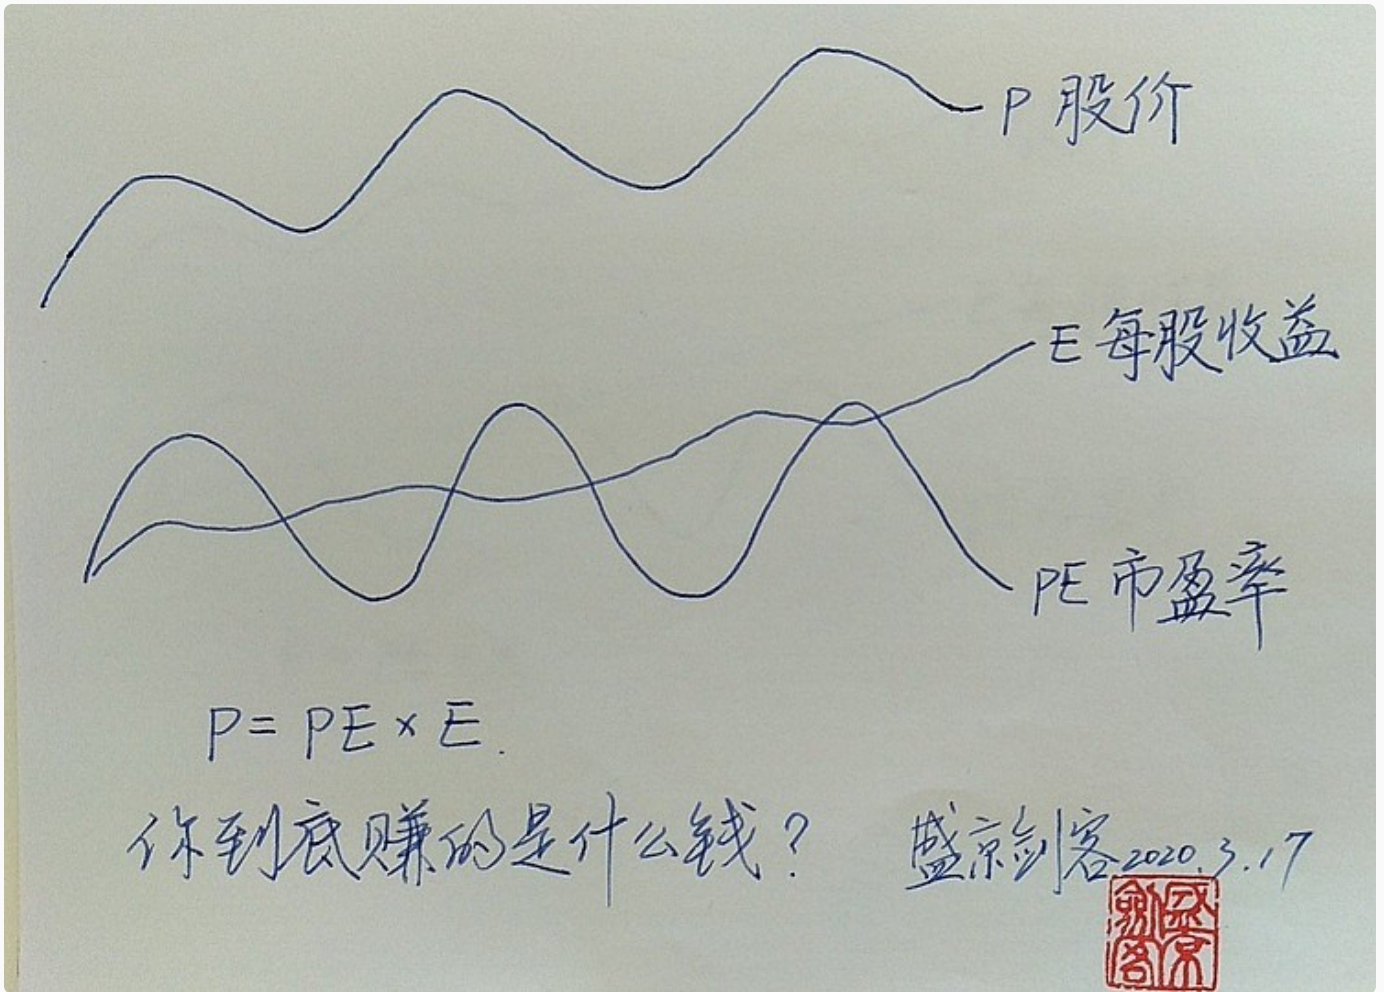 P 股价
E 每股收益
PE 市盈率
P = PE × E.
你到底赚的是什么钱？ 盛京剑客 2020.3.17
盛京剑客